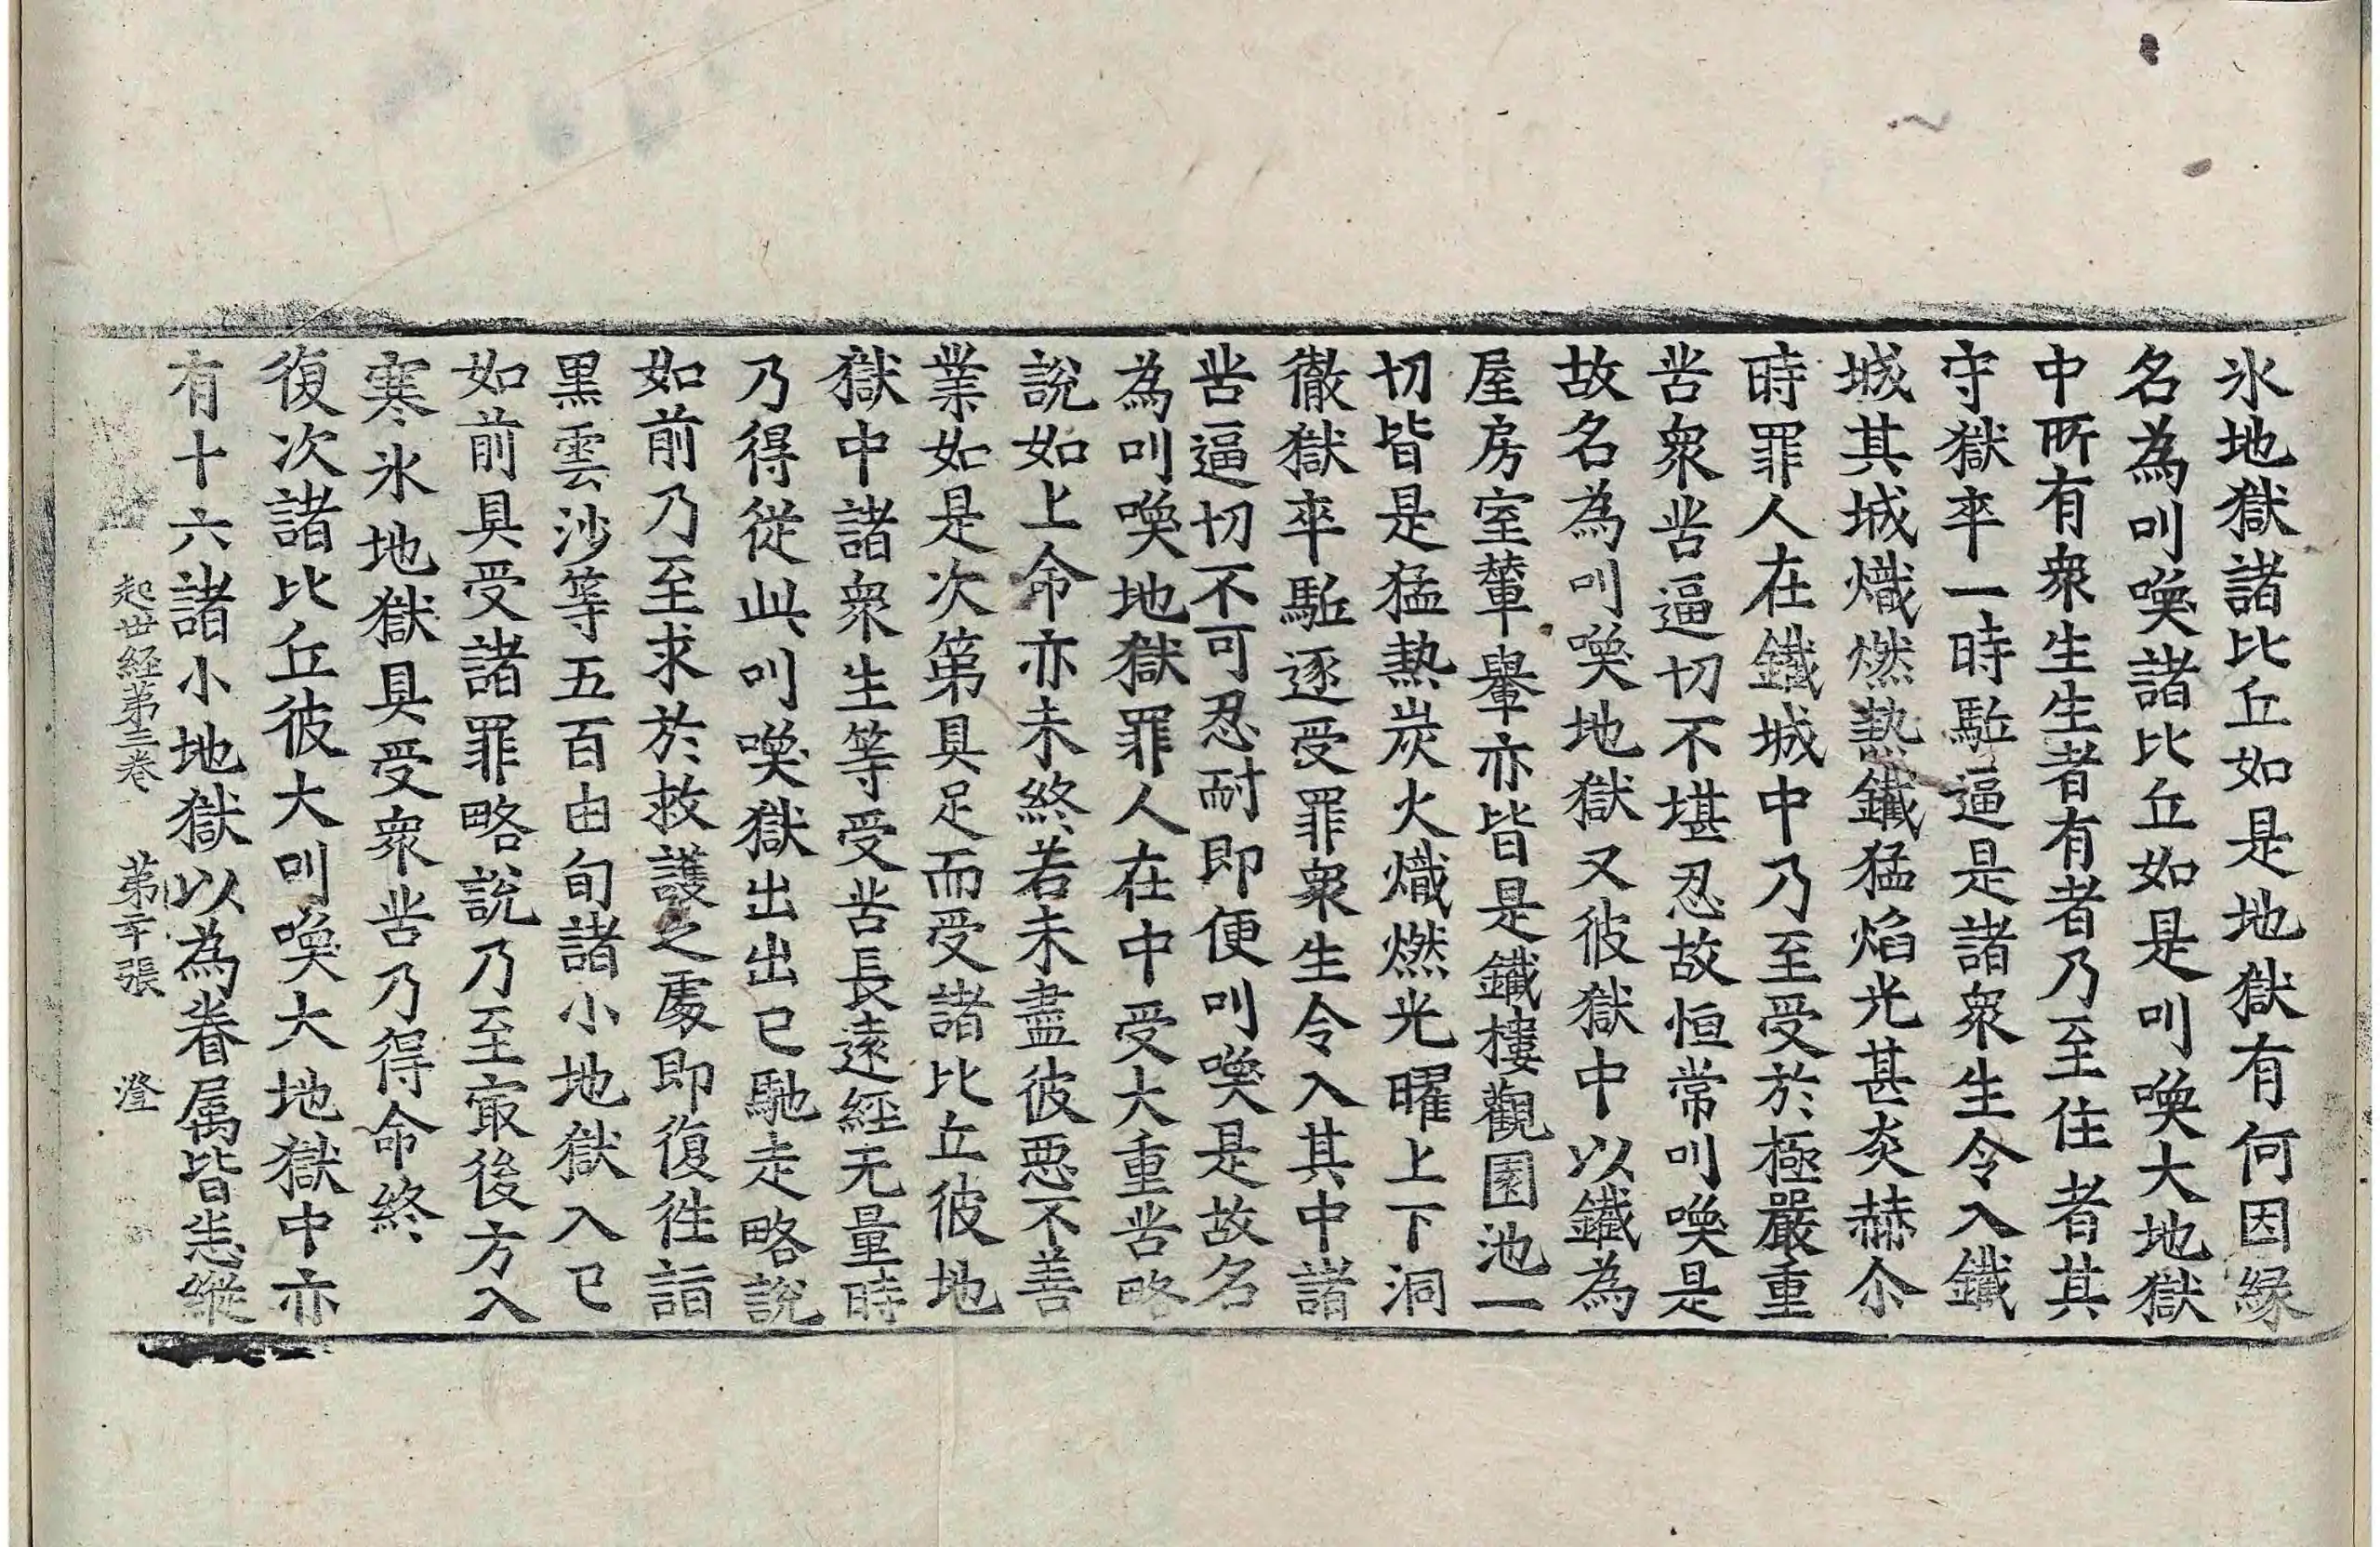 氷地獄諸比丘如是地獄有何因縁
名為叫喚諸比丘如是叫喚大地獄
中所有衆生生者有者乃至住者其
守獄卒一時駈逼是諸衆生令入鐵
城其城熾燃熱鐵猛焰光甚炎赫尒
時罪人在鐵城中乃至受於極嚴重
苦衆苦逼切不堪忍故恒常叫喚是
故名為叫喚地獄又彼獄中以鐵為
屋房室輦轝亦皆是鐵樓觀園池一
切皆是猛熱炭火熾燃光曜上下洞
徹獄卒駈逐受罪衆生令入其中諸
苦逼切不可忍耐即便叫喚是故名
為叫喚地獄罪人在中受大重苦略
說如上命亦未終若未盡彼惡不善
業如是次第具足而受諸比丘彼地
獄中諸衆生等受苦長遠經无量時
乃得從此叫喚獄出出已馳走略說
如前乃至求於救護之處即復往詣
黒雲沙等五百由旬諸小地獄入已
如前具受諸罪略說乃至㝡後方入
寒氷地獄具受衆苦乃得命終
復次諸比丘彼大叫喚大地獄中亦
有十六諸小地獄以為眷属皆悉縱
起世経苐二卷 苐二十張 澄